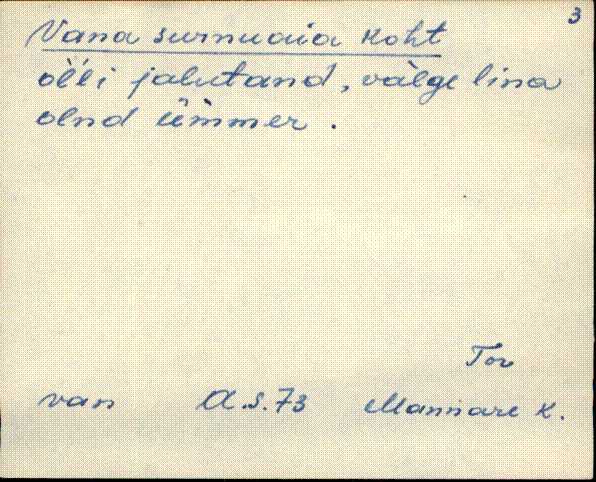 3
Vana surnuaia koht
ölli jalutand, välge lina
olnd ümmer.
Tor
van A.S.73 Mannare K.